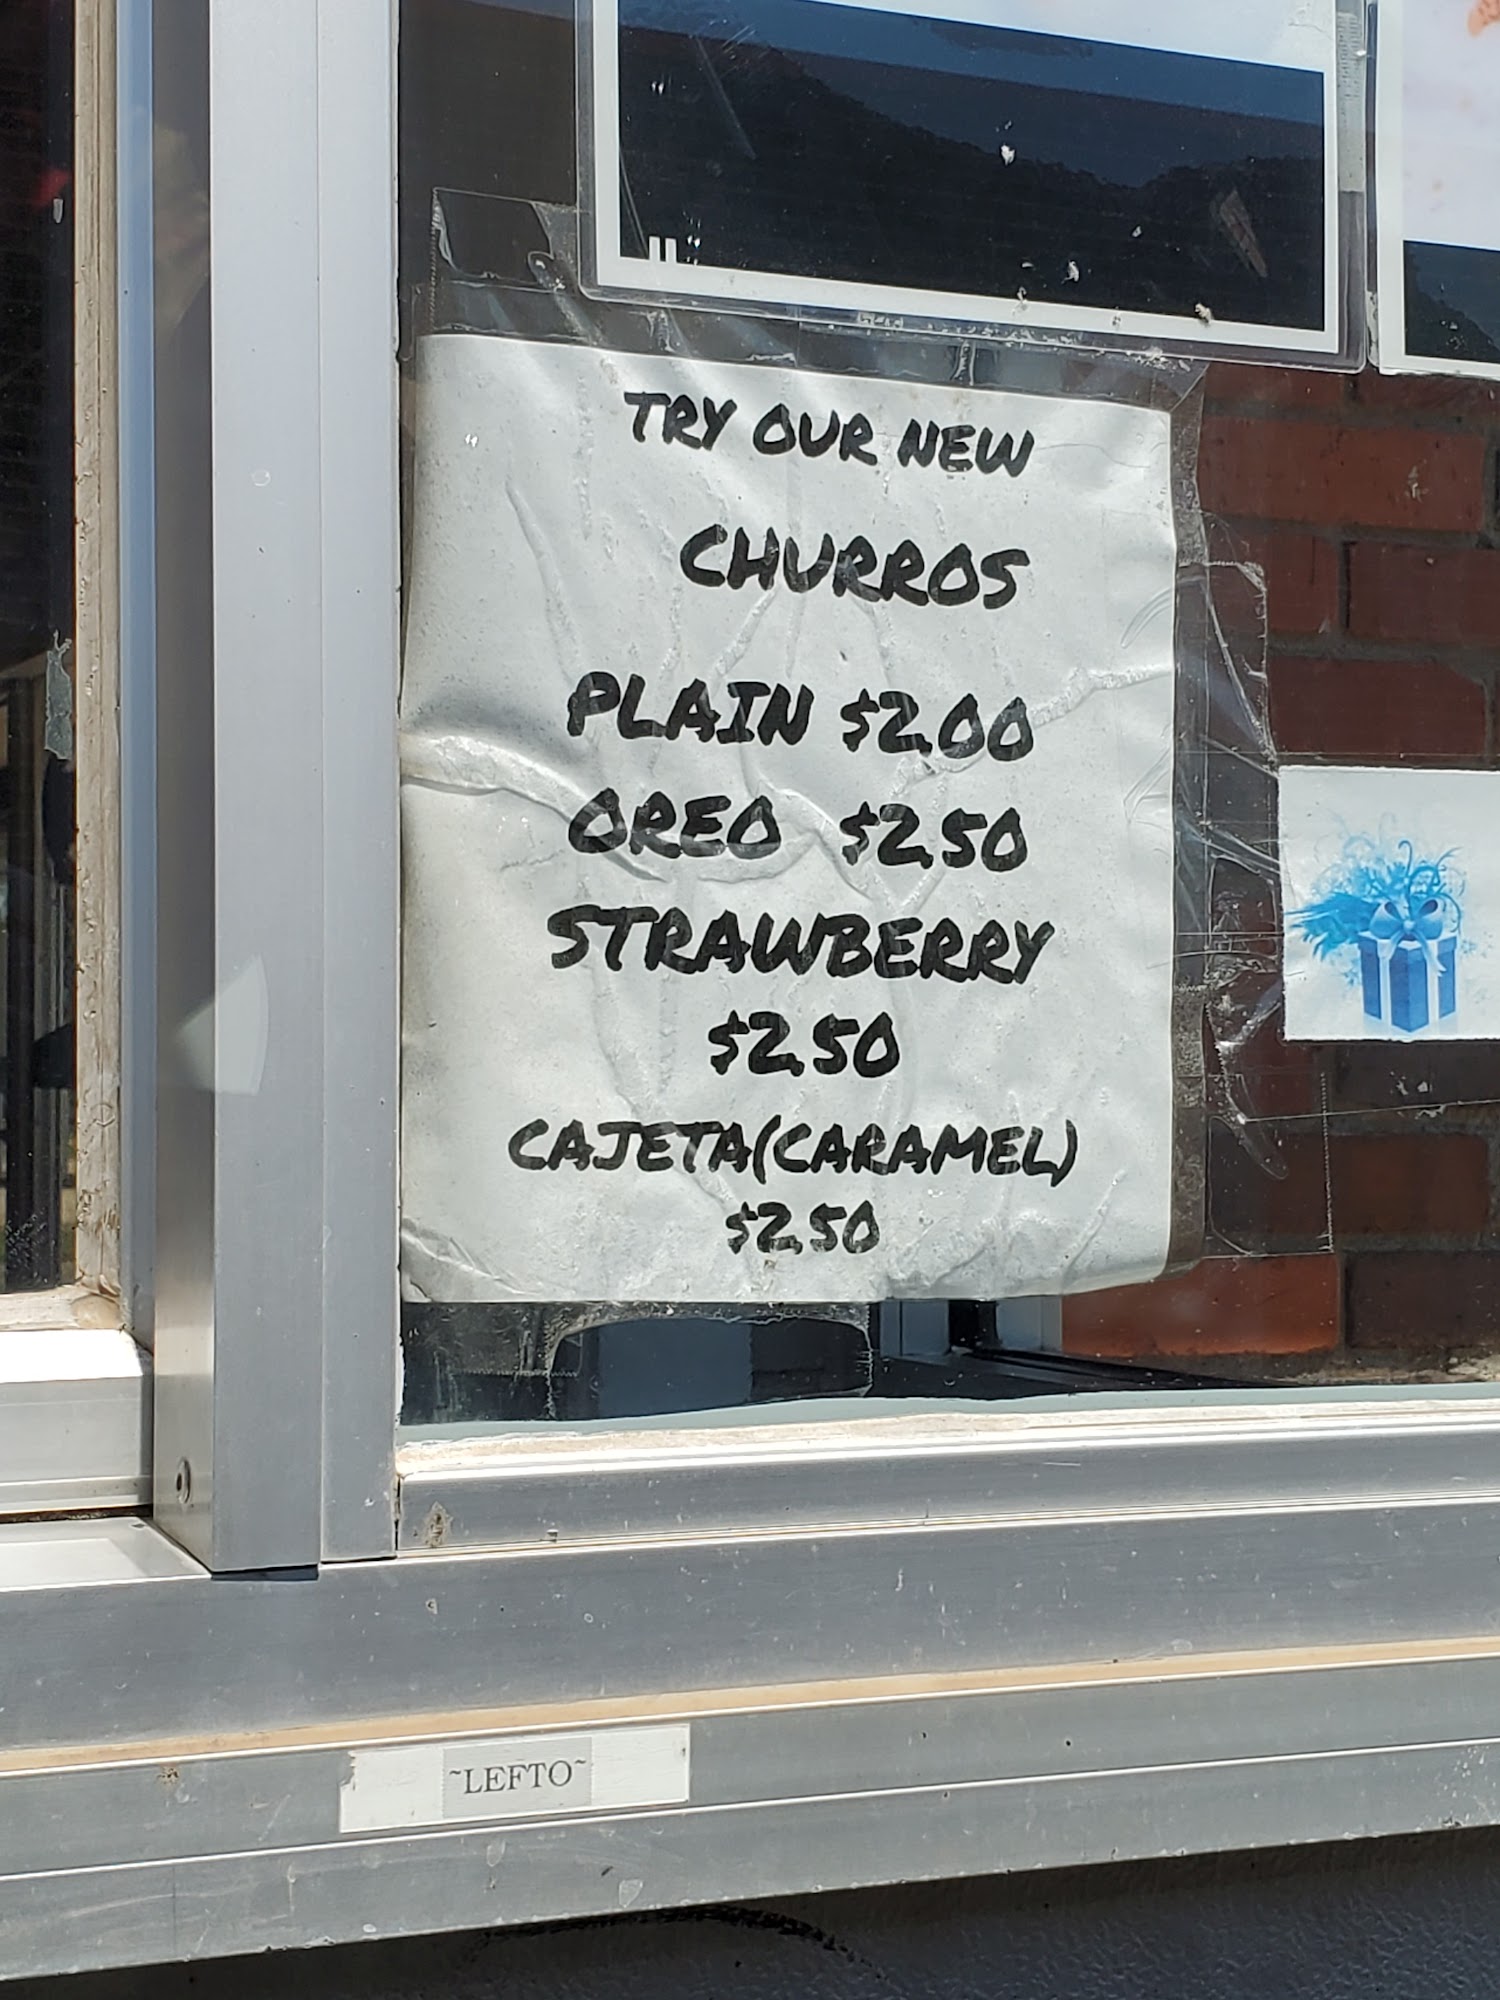 TRY OUR NEW
CHURROS
PLAIN $2.00
OREO $2.50
STRAWBERRY
$2.50
CAJETA(CARAMEL)
$2.50
~LEFTO~